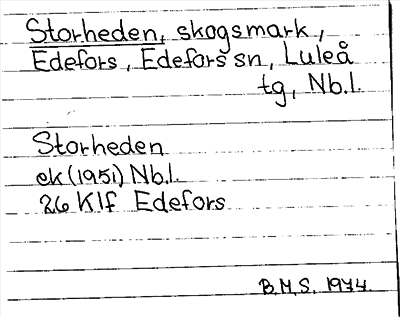 Storheden, skogsmark,
Edefors, Edefors sn, Luleå
tg, Nb.l.
Storheden
ek (1951) Nb.l.
26 Klf Edefors
B.M.S. 1974.